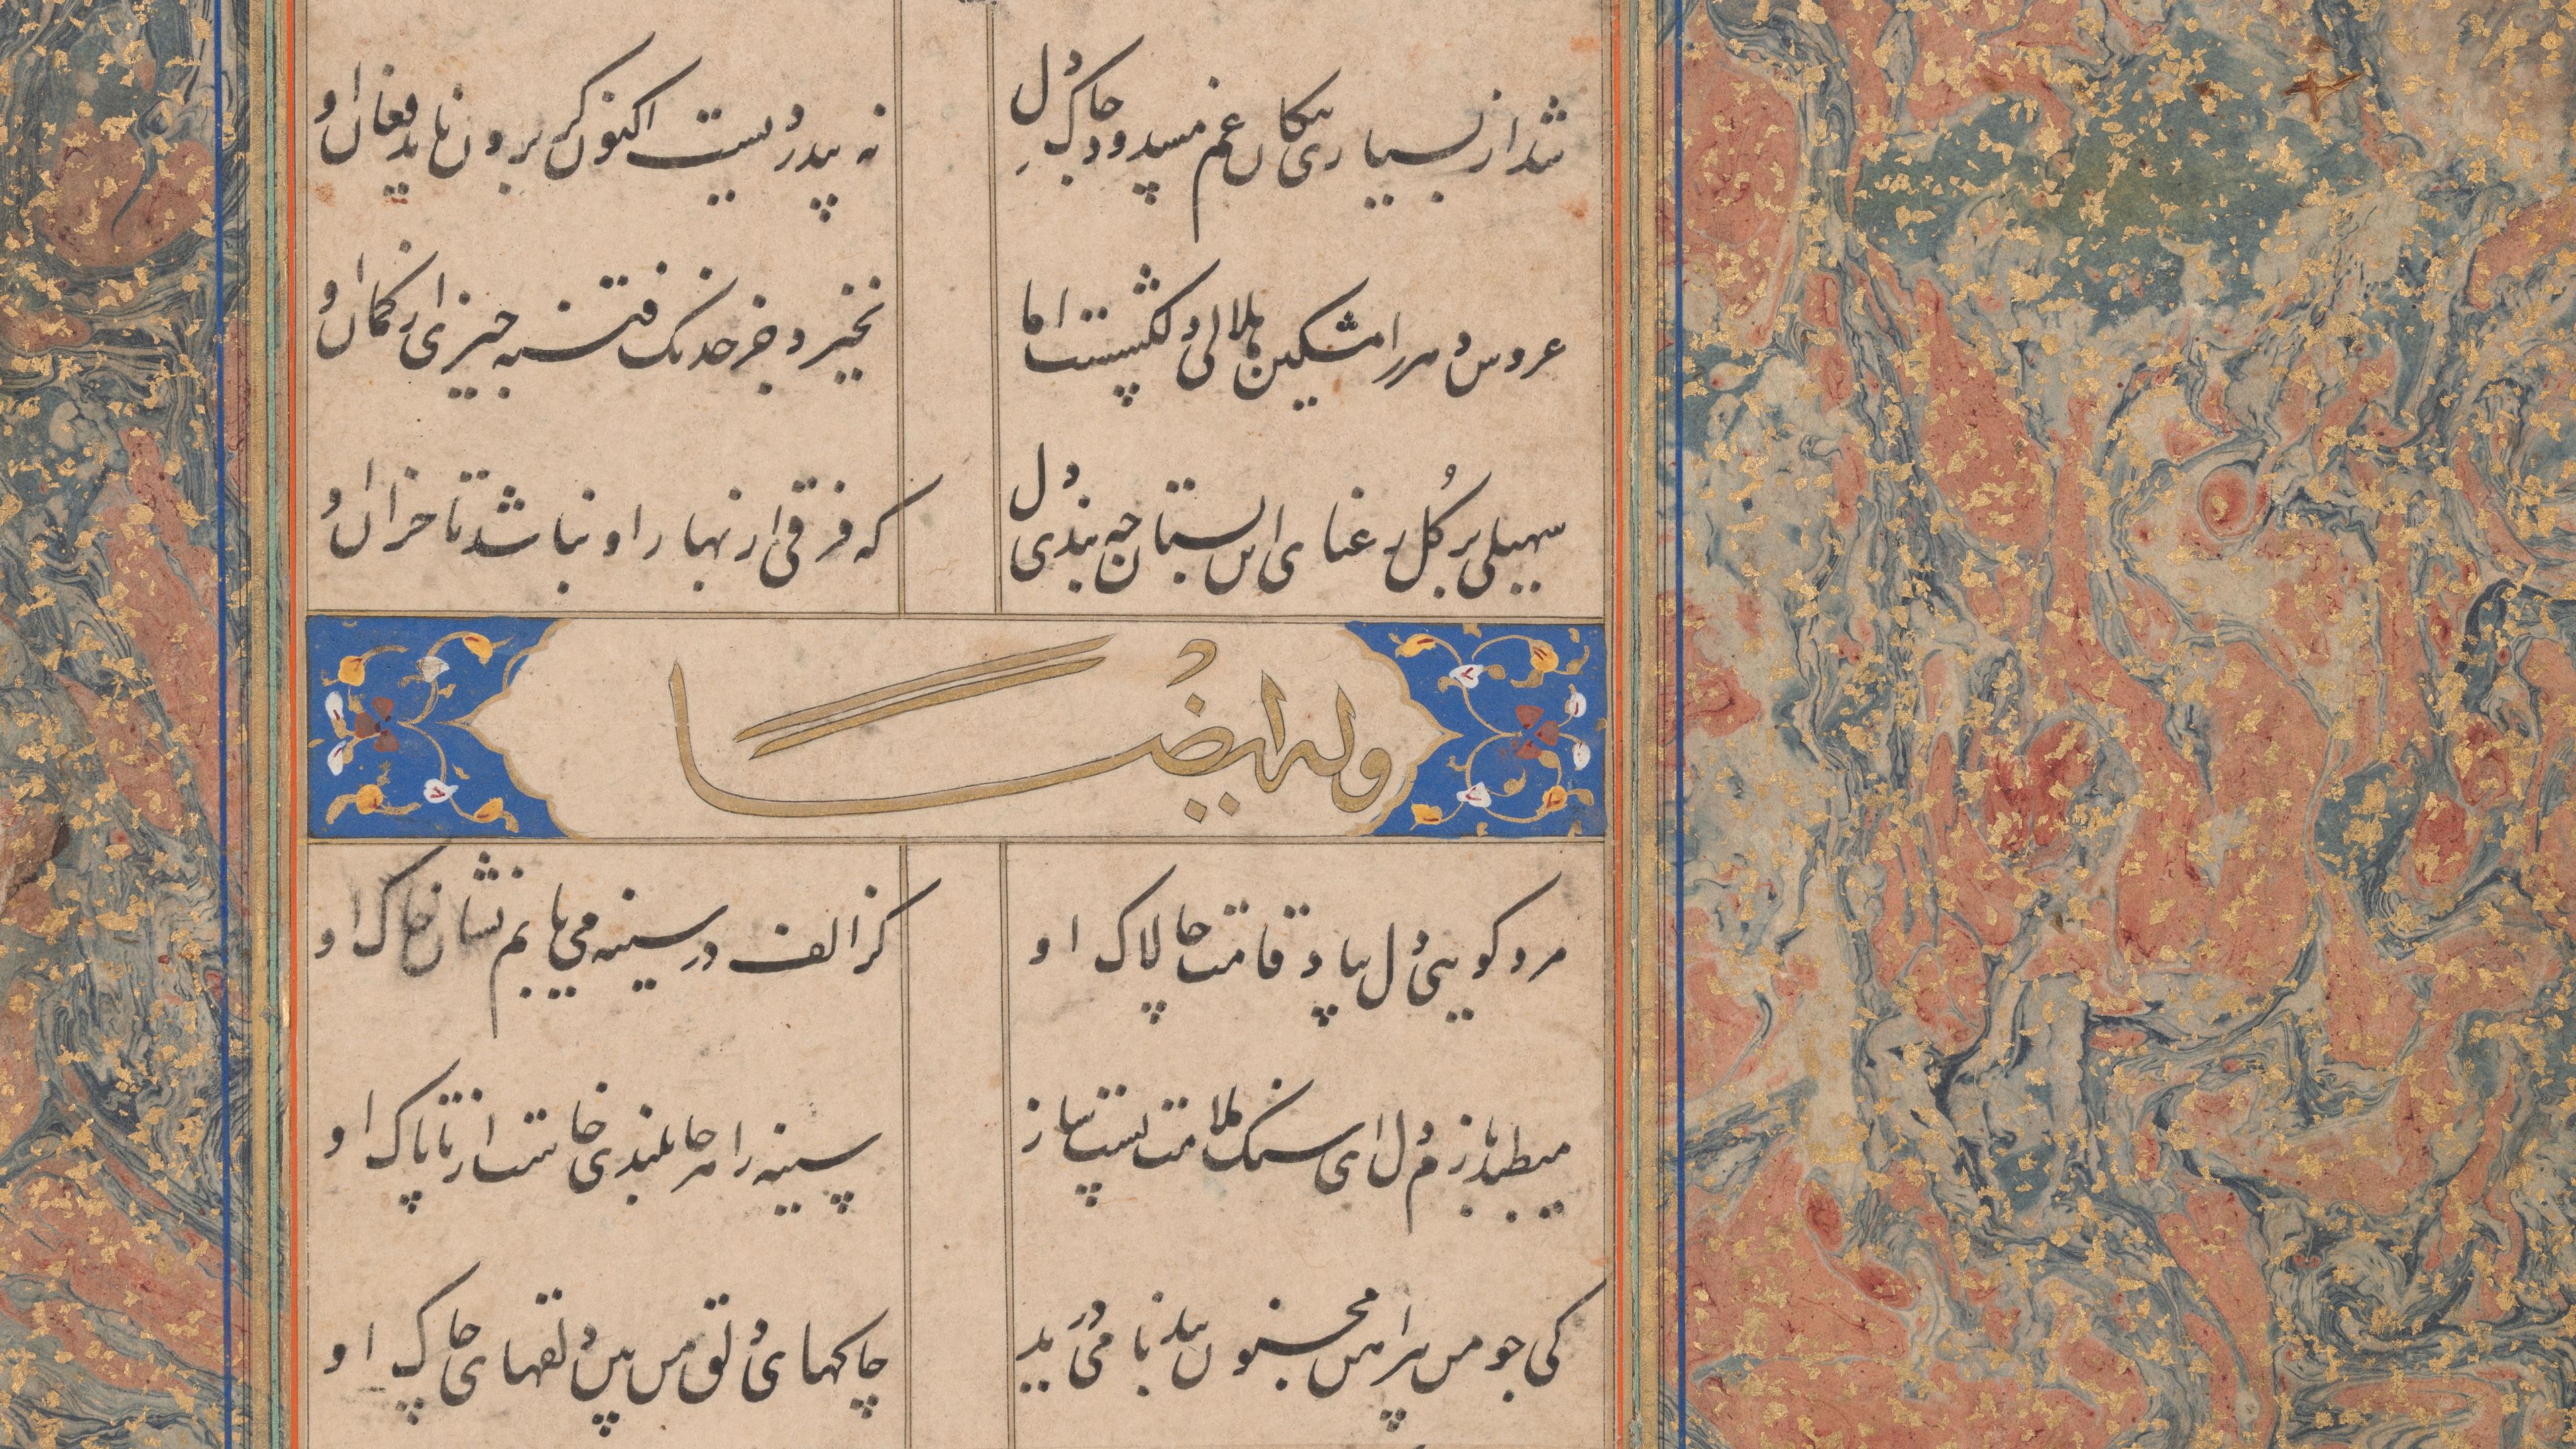 شد از بسیاری پیکان غم مسدود چاک دل
نه پیدر نیست اکنون گر برون ناید فغان او
عروس دهر را مشکین هلالی دلکشست اما
نخیزد جز خدنگ فتنه‌خیزی از کمان او
سهیلی بر گل رعنای این بستان چه بندی دل
که فرقی از بهار او نباشد تا خزان او
وله ایضا
مرد کویی دل بیاد قامت چالاک او
کز الف در سینه می‌یابم نشان خاک او
میطپد بازم دل ای سنگ ملامت پست ساز
سینه را هر جا بلندی خاست از ناپاک او
کی چو من پیراهن مجنون بدنیا می‌درید
چاکهای دلق من بین دلقهای چاک او